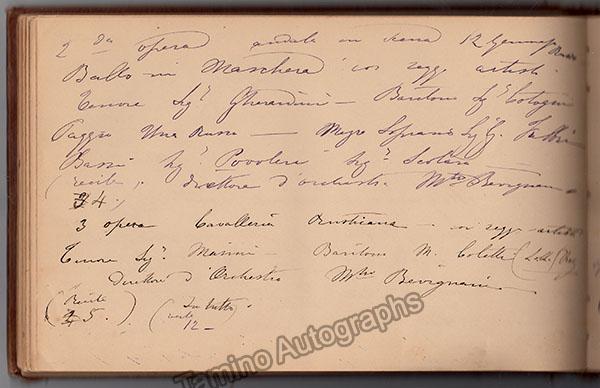 2 da opera andata in scena 12 Gennajo
Ballo in Maschera coi segg artisti
Tenore Sigr Gherardini — Baritono Sigr Cotogni
Paggio Una Russa — Mezzo Soprano Sig. Fabbri
Bassi Sigr Povoleri Sigr Scolara
(recite 4) direttore d'orchestra Mtro Bevignani
3 opera Cavalleria Rusticana — coi segg artisti
Tenore Sigr Masini — Baritono M. Coletti
Direttore d'Orchestra Mtro Bevignani
(Recite 5.) (In tutto recite 12 —
Tamino Autographs